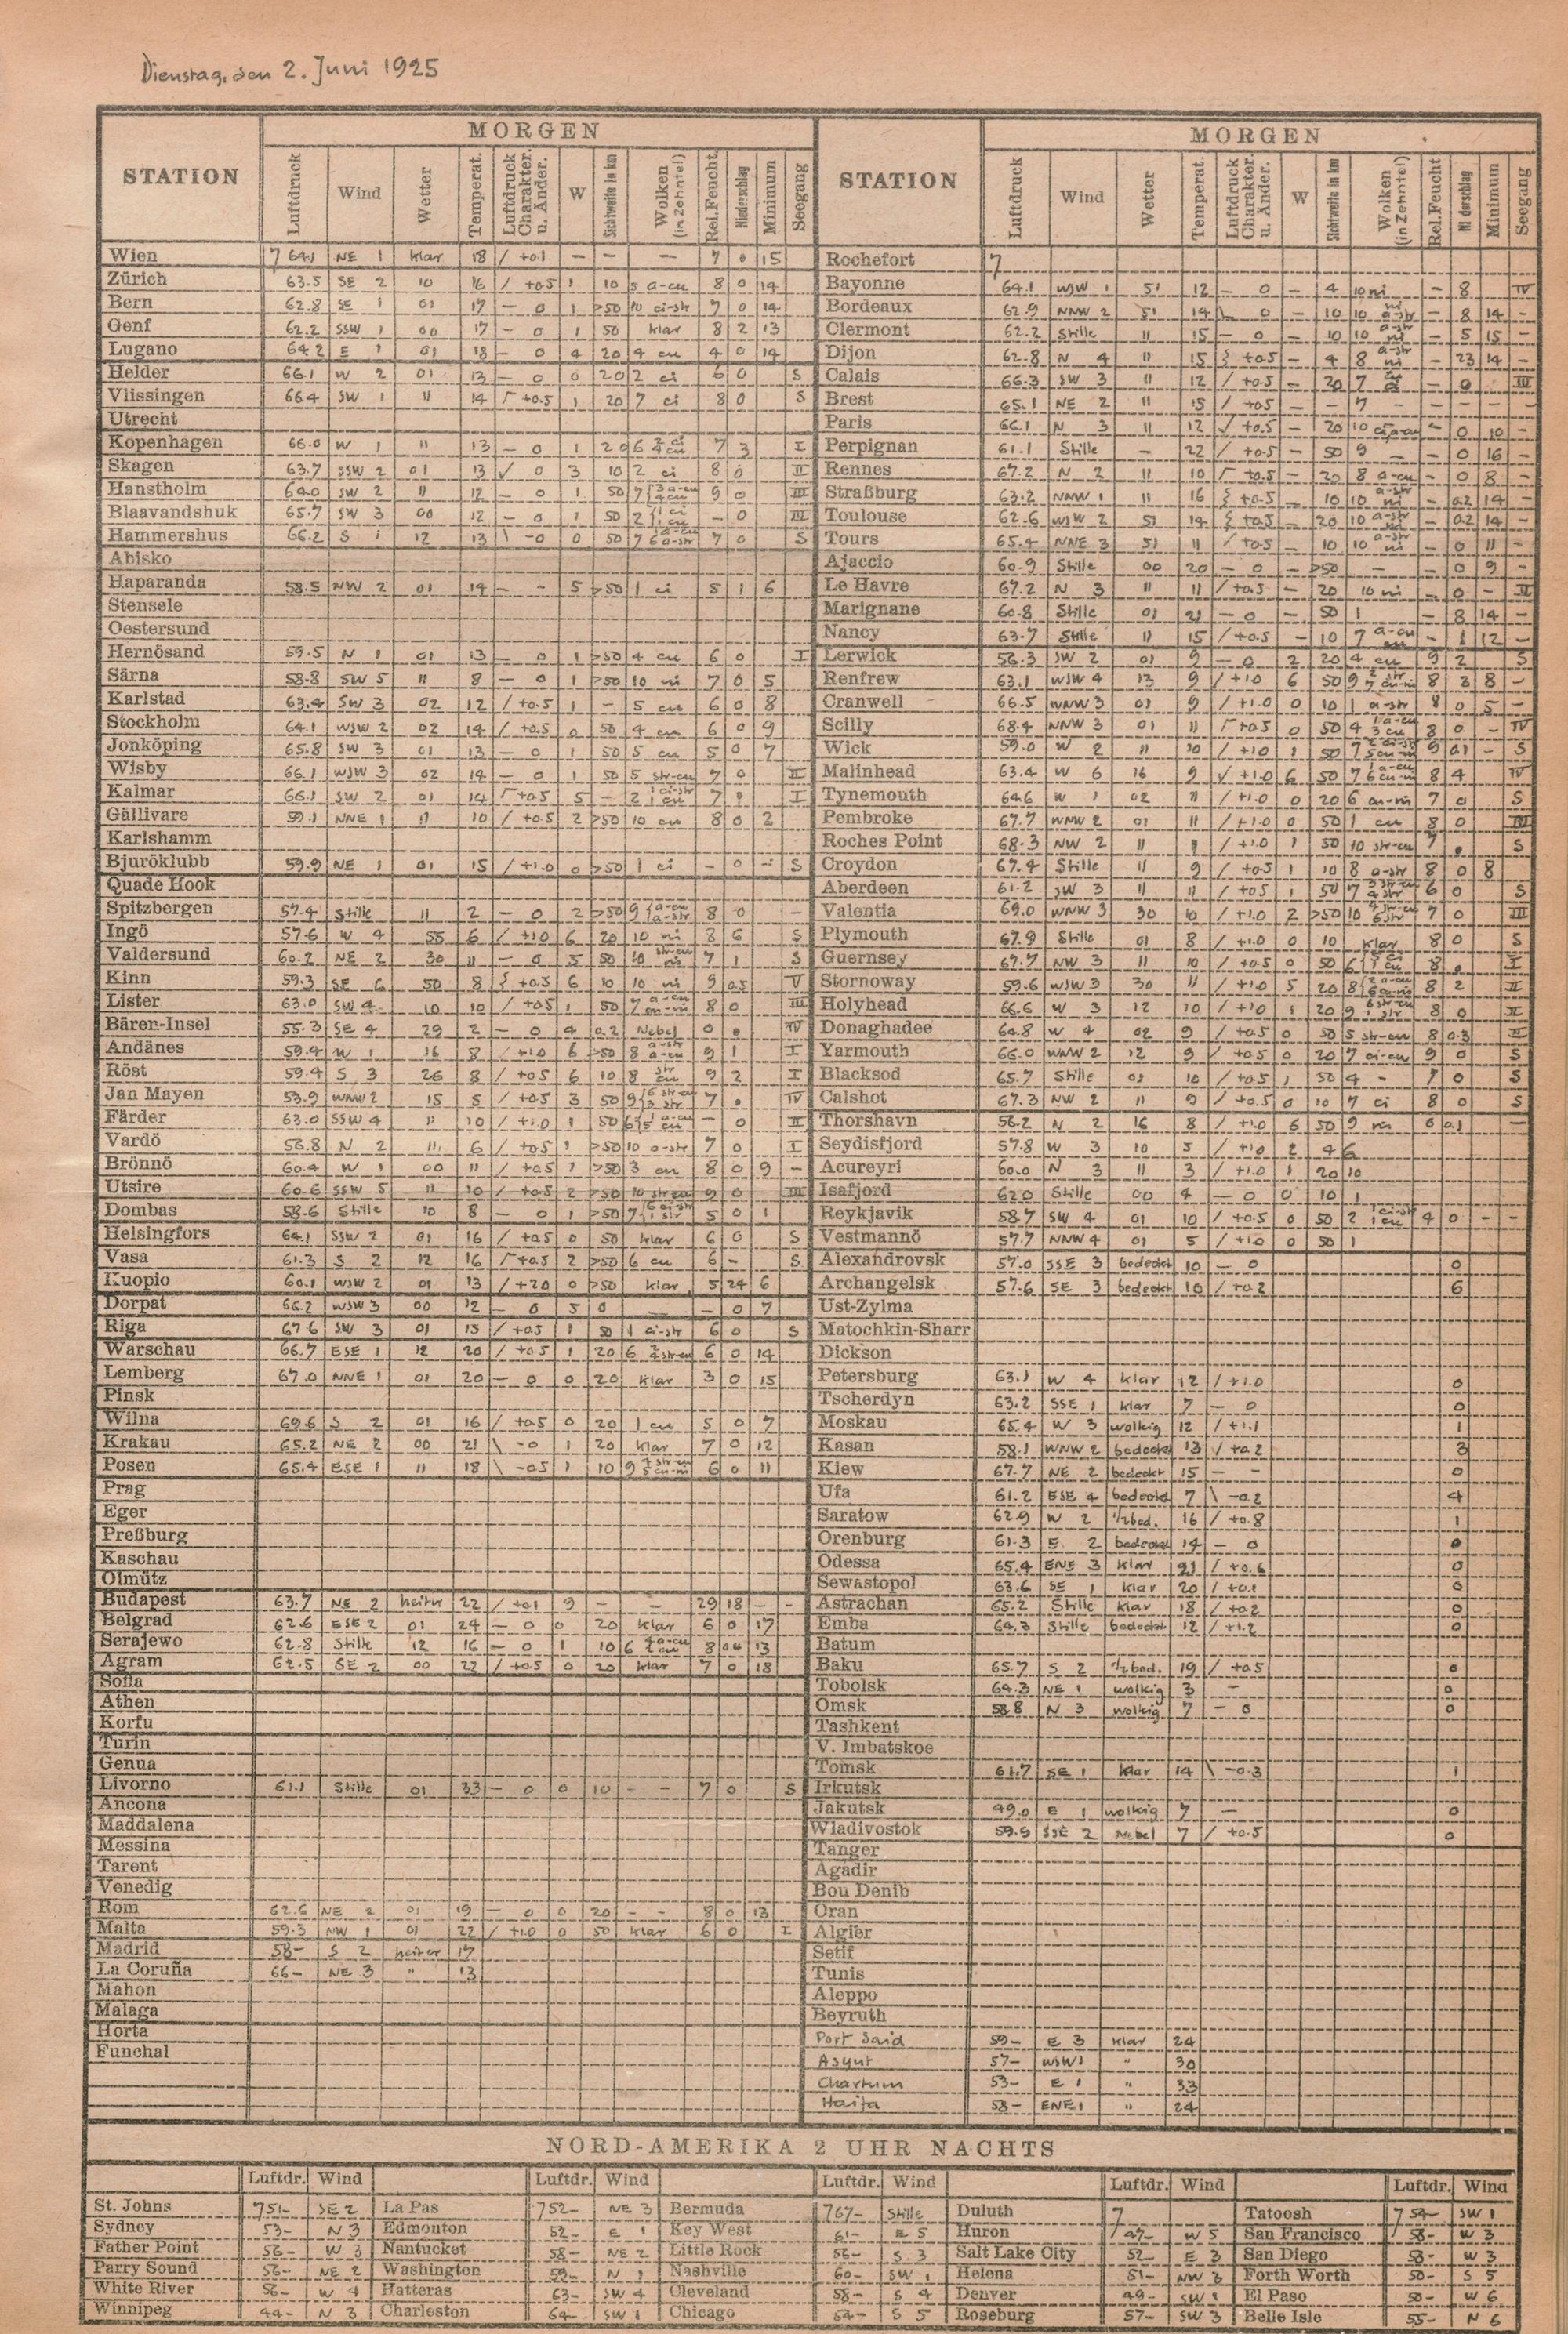 Dienstag, den 2. Juni 1925
MORGEN
STATION Luftdruck Wind Wetter Temperat. Luftdruck Charakter. u. Änder. W Sichtweite in km Wolken (in Zehntel) Rel. Feucht. Niederschlag Minimum Seegang
Wien 7 64.1 NE 1 klar 18 / +0.1 — — — 7 0 15
Zürich 63.5 SE 2 10 16 / +0.5 1 10 5 a-cu 8 0 14
Bern 62.8 SE 1 01 17 — 0 1 >50 10 ci-str 7 0 14
Genf 62.2 SSW 1 00 17 — 0 1 50 klar 8 2 13
Lugano 64.2 E 1 01 18 — 0 4 20 4 cu 4 0 14
Helder 66.1 W 2 01 13 — 0 0 20 2 ci 6 0 S
Vlissingen 66.4 SW 1 " 14 +0.5 1 20 7 ci 8 0 S
Utrecht
Kopenhagen 66.0 W 1 " 13 — 0 1 20 6 7 3 I
Skagen 63.7 SSW 2 01 13 0 3 10 2 ci 8 0 II
Hanstholm 64.0 SW 2 " 12 — 0 1 50 7 9 0 III
Blaavandshuk 65.7 SW 3 00 12 — 0 1 50 2 — 0 III
Hammershus 66.2 S 1 12 13 \ -0 0 50 7 7 0 S
Abisko
Haparanda 58.5 NW 2 01 14 — - 5 >50 1 ci 5 1 6
Stensele
Oestersund
Hernösand 59.5 N 1 01 13 — 0 1 >50 4 cu 6 0 I
Särna 58.8 SW 5 " 8 — 0 1 >50 10 ni 7 0 5
Karlstad 63.4 SW 3 02 12 / +0.5 1 — 5 cu 6 0 8
Stockholm 64.1 WSW 2 02 14 / +0.5 0 50 4 cu 6 0 9
Jonköping 65.8 SW 3 01 13 — 0 1 50 5 cu 5 0 7
Wisby 66.1 WSW 3 02 14 — 0 1 50 5 str-cu 7 0 II
Kalmar 66.1 SW 2 01 14 +0.5 5 — 2 7 I
Gällivare 59.1 NNE 1 10 / +0.5 2 >50 10 cu 8 0 2
Karlshamm
Bjuröklubb 59.9 NE 1 01 15 / +1.0 0 >50 1 ci — 0 — S
Quade Hook
Spitzbergen 57.4 Stille " 2 — 0 2 >50 9 8 0 —
Ingö 57.6 W 4 55 6 / +1.0 6 20 10 ni 8 6 S
Valdersund 60.2 NE 2 30 11 — 0 5 50 10 7 1 S
Kinn 59.3 SE 6 50 8 +0.5 6 10 10 ni 9 0.5 V
Lister 63.0 SW 4 10 10 / +0.5 1 50 7 8 0 III
Bären-Insel 55.3 SE 4 29 2 — 0 4 0.2 Nebel 0 IV
Andänes 59.4 W 1 16 8 / +1.0 6 >50 8 9 1 I
Röst 59.4 S 3 26 8 / +0.5 6 10 8 9 2 I
Jan Mayen 53.9 WNW 2 15 5 / +0.5 3 50 9 7 IV
Färder 63.0 SSW 4 " 10 / +1.0 1 50 6 — 0 II
Vardö 56.8 N 2 " 6 / +0.5 1 >50 10 a-str 7 0 I
Brönnö 60.4 W 1 00 11 / +0.5 1 >50 3 cu 8 0 9 —
Utsire 60.6 SSW 5 " 10 / +0.5 2 >50 10 str-cu 9 0 III
Dombas 58.6 Stille 10 8 — 0 1 >50 7 5 0 1
Helsingfors 64.1 SSW 2 01 16 / +0.5 0 50 klar 6 0 S
Vasa 61.3 S 2 12 16 +0.5 2 >50 6 cu 6 — S
Kuopio 60.1 WSW 2 01 13 / +2.0 0 >50 klar 5 24 6
Dorpat 66.2 WSW 3 00 12 — 0 5 0 — — 0 7
Riga 67.6 SW 3 01 15 / +0.5 1 50 1 ci-str 6 0 S
Warschau 66.7 ESE 1 12 20 / +0.5 1 20 6 6 0 14
Lemberg 67.0 NNE 1 01 20 — 0 0 20 klar 3 0 15
Pinsk
Wilna 69.6 S 2 01 16 / +0.5 0 20 1 cu 5 0 7
Krakau 65.2 NE 2 00 21 \ -0 1 20 klar 7 0 12
Posen 65.4 ESE 1 " 18 \ -0.5 1 10 9 6 0 11
Prag
Eger
Preßburg
Kaschau
Olmütz
Budapest 63.7 NE 2 heiter 22 / +0.1 9 — — 29 18 — -
Belgrad 62.6 ESE 2 01 24 — 0 0 20 klar 6 0 17
Serajewo 62.8 Stille 12 16 — 0 1 10 6 8 0.4 13
Agram 62.5 SE 2 00 22 / +0.5 0 20 klar 7 0 18
Sofia
Athen
Korfu
Turin
Genua
Livorno 61.1 Stille 01 33 — 0 0 10 — - 7 0 S
Ancona
Maddalena
Messina
Tarent
Venedig
Rom 62.6 NE 2 01 19 — 0 0 20 - - 8 0 13
Malta 59.3 NW 1 01 22 / +1.0 0 50 klar 6 0 I
Madrid 58- S 2 heiter 17
La Coruña 66- NE 3 " 13
Mahon
Malaga
Horta
Funchal
MORGEN
STATION Luftdruck Wind Wetter Temperat. Luftdruck Charakter. u. Änder. W Sichtweite in km Wolken (in Zehntel) Rel. Feucht Ni derschlag Minimum Seegang
Rochefort 7
Bayonne 64.1 WSW 1 51 12 — 0 — 4 10 ni — 8 IV
Bordeaux 62.9 NNW 2 51 14 0 — 10 10 — 8 14 -
Clermont 62.2 Stille " 15 — 0 — 10 10 — 5 15 -
Dijon 62.8 N 4 " 15 +0.5 — 4 8 — 23 14 —
Calais 66.3 SW 3 " 12 / +0.5 — 20 7 — 0 III
Brest 65.1 NE 2 " 15 / +0.5 — — 7 — — — —
Paris 66.1 N 3 " 12 +0.5 — 20 10 0 10 —
Perpignan 61.1 Stille — 22 / +0.5 — 50 9 — — 0 16 -
Rennes 67.2 N 2 " 10 +0.5 — 20 8 a-cu — 0 8 -
Straßburg 63.2 NNW 1 " 16 +0.5 — 10 10 — 0.2 14 —
Toulouse 62.6 WSW 2 51 14 +0.5 — 20 10 — 0.2 14 —
Tours 65.4 NNE 3 51 11 / +0.5 — 10 10 — 0 11 -
Ajaccio 60.9 Stille 00 20 — 0 — >50 — — 0 9 -
Le Havre 67.2 N 3 " 11 / +0.5 — 20 10 ni — 0 — II
Marignane 60.8 Stille 01 21 — 0 — 50 1 — 8 14 —
Nancy 63.7 Stille " 15 / +0.5 — 10 7 — 1 12 —
Lerwick 56.3 SW 2 01 9 — 0 2 20 4 cu 9 2 S
Renfrew 63.1 WSW 4 13 9 / +1.0 6 50 9 8 3 8 —
Cranwell 66.5 WNW 3 01 9 / +1.0 0 10 1 a-str 8 0 5 -
Scilly 68.4 NNW 3 01 11 +0.5 0 50 4 8 0 - IV
Wick 59.0 W 2 " 10 / +1.0 1 50 7 9 0.1 - S
Malinhead 63.4 W 6 16 9 +1.0 6 50 7 8 4 IV
Tynemouth 64.6 W 1 02 11 / +1.0 0 20 6 cu-ni 7 0 S
Pembroke 67.7 WNW 2 01 11 / +1.0 0 50 1 cu 8 0 IV
Roches Point 68.3 NW 2 " / +1.0 1 50 10 str-cu 7 S
Croydon 67.4 Stille " 9 / +0.5 1 10 8 a-str 8 0 8
Aberdeen 61.2 SW 3 " 11 / +0.5 1 50 7 6 0 S
Valentia 69.0 WNW 3 30 10 / +1.0 2 >50 10 7 0 III
Plymouth 67.9 Stille 01 8 / +1.0 0 10 klar 8 0 S
Guernsey 67.7 NW 3 " 10 / +0.5 0 50 6 8 I
Stornoway 59.6 WSW 3 30 11 / +1.0 5 20 8 8 2 II
Holyhead 66.6 W 3 12 10 / +1.0 1 20 9 8 0 II
Donaghadee 64.8 W 4 02 9 / +0.5 0 50 5 str-cu 8 0.3 II
Yarmouth 66.0 WNW 2 12 9 / +0.5 0 20 7 ci-cu 9 0 S
Blacksod 65.7 Stille 01 10 / +0.5 1 50 4 - 0 S
Calshot 67.3 NW 2 " 9 / +0.5 0 10 7 ci 8 0 S
Thorshavn 56.2 N 2 16 8 / +1.0 6 50 9 ni 6 0.1 —
Seydisfjord 57.8 W 3 10 5 / +1.0 2 4 6
Acureyri 60.0 N 3 " 3 / +1.0 1 20 10
Isafjord 62.0 Stille 00 4 — 0 0 10 1
Reykjavik 58.7 SW 4 01 10 / +0.5 0 50 2 4 0 - -
Vestmannö 57.7 NNW 4 01 5 / +1.0 0 50 1
Alexandrovsk 57.0 SSE 3 bedeckt 10 — 0 0
Archangelsk 57.6 SE 3 bedeckt 10 / +0.2 6
Ust-Zylma
Matochkin-Sharr
Dickson
Petersburg 63.1 W 4 klar 12 / +1.0 0
Tscherdyn 63.2 SSE 1 klar 7 — 0 0
Moskau 65.4 W 3 wolkig 12 / +1.1 1
Kasan 58.1 WNW 2 bedeckt 13 / +0.2 3
Kiew 67.7 NE 2 bedeckt 15 — - 0
Ufa 61.2 ESE 4 bedeckt 7 \ -0.2 4
Saratow 62.9 W 2 1/2 bed. 16 / +0.8 1
Orenburg 61.3 E 2 bedeckt 14 — 0 0
Odessa 65.4 ENE 3 klar 21 / +0.6 0
Sewastopol 63.6 SE 1 klar 20 / +0.1 0
Astrachan 65.2 Stille klar 18 / +0.2 0
Emba 64.3 Stille bedeckt 12 / +1.2 0
Batum
Baku 65.7 S 2 1/2 bed. 19 / +0.5 0
Tobolsk 64.3 NE 1 wolkig 3 — 0
Omsk 58.8 N 3 wolkig 7 — 0 0
Tashkent
V. Imbatskoe
Tomsk 61.7 SE 1 klar 14 \ -0.3 1
Irkutsk
Jakutsk 49.0 E 1 wolkig 7 — 0
Wladivostok 59.5 SSE 2 Nebel 7 / +0.5 0
Tanger
Agadir
Bou Denib
Oran
Algier
Setif
Tunis
Aleppo
Beyruth
Port Said 59- E 3 klar 24
Asyut 57- WSW 1 " 30
Chartum 53- E 1 " 33
Haifa 58- ENE 1 " 24
NORD-AMERIKA 2 UHR NACHTS
Luftdr. Wind Luftdr. Wind Luftdr. Wind Luftdr. Wind Luftdr. Wind
St. Johns 751- SE 2 La Pas 752- NE 3 Bermuda 767- Stille Duluth 7 Tatoosh 754- SW 1
Sydney 53- N 3 Edmonton 52- E 1 Key West 61- E 5 Huron 47- W 5 San Francisco 58- W 3
Father Point 56- W 3 Nantucket 58- NE 2 Little Rock 56- S 3 Salt Lake City 52- E 3 San Diego 58- W 3
Parry Sound 56- NE 2 Washington 59- N 1 Nashville 60- SW 1 Helena 51- NW 3 Forth Worth 50- S 5
White River 56- W 4 Hatteras 63- SW 4 Cleveland 58- S 4 Denver 49- SW 1 El Paso 50- W 6
Winnipeg 44- N 3 Charleston 64- SW 1 Chicago 54- S 5 Roseburg 57- SW 3 Belle Isle 55- N 6